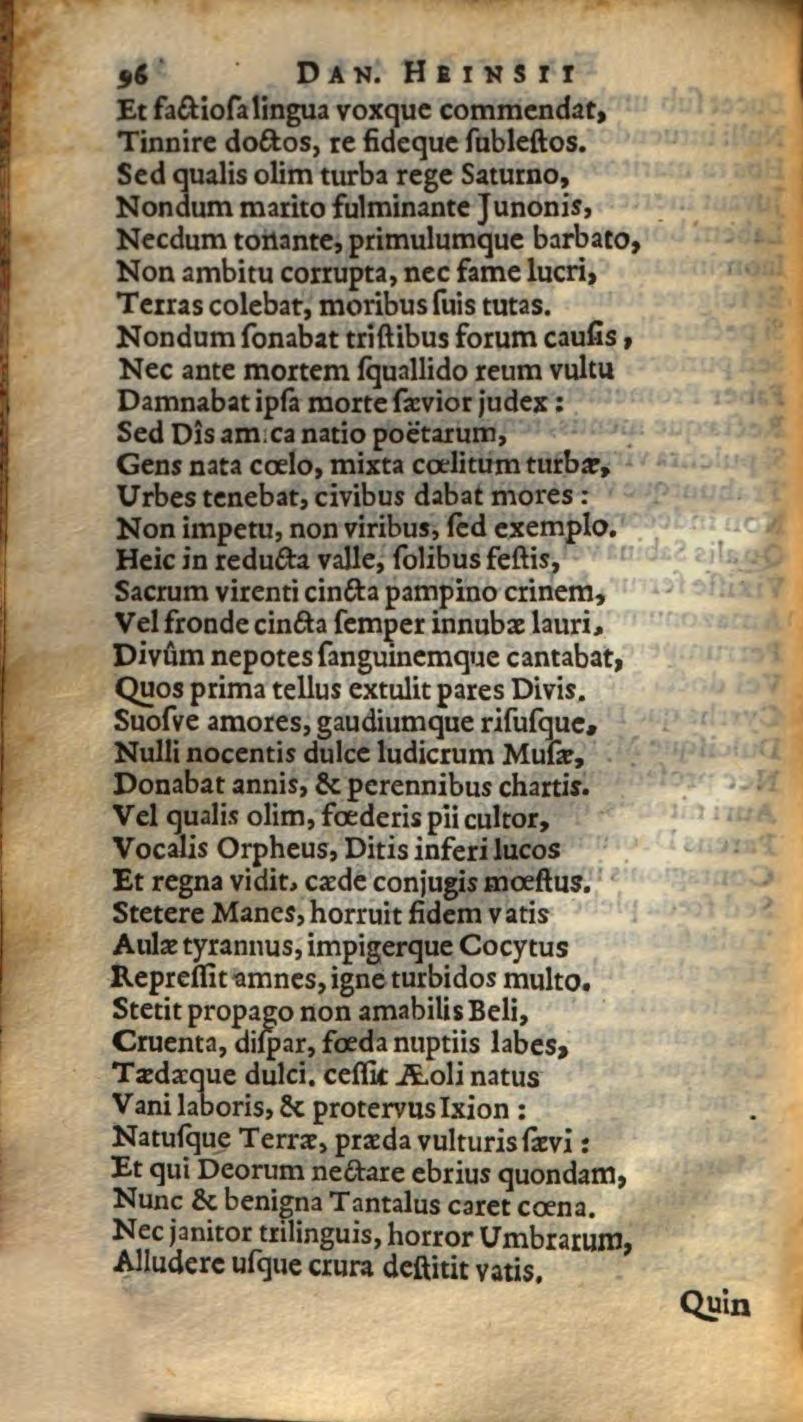 96 DAN. HEINSII
Et factiosa lingua voxque commendat,
Tinnire doctos, re fideque sublestos.
Sed qualis olim turba rege Saturno,
Nondum marito fulminante Junonis,
Necdum tonante, primulumque barbato,
Non ambitu corrupta, nec fame lucri,
Terras colebat, moribus suis tutas.
Nondum sonabat tristibus forum causis,
Nec ante mortem squallido reum vultu
Damnabat ipsa morte sævior judex:
Sed Dîs amica natio poëtarum,
Gens nata cœlo, mixta cœlitum turbæ,
Urbes tenebat, civibus dabat mores:
Non impetu, non viribus, sed exemplo.
Heic in reducta valle, solibus festis,
Sacrum virenti cincta pampino crinem,
Vel fronde cincta semper innubæ lauri,
Divûm nepotes sanguinemque cantabat,
Quos prima tellus extulit pares Divis.
Suosve amores, gaudiumque risusque,
Nulli nocentis dulce ludicrum Musæ,
Donabat annis, & perennibus chartis.
Vel qualis olim, fœderis pii cultor,
Vocalis Orpheus, Ditis inferi lucos
Et regna vidit, cæde conjugis mœstus.
Stetere Manes, horruit fidem vatis
Aulæ tyrannus, impigerque Cocytus
Repressit amnes, igne turbidos multo.
Stetit propago non amabilis Beli,
Cruenta, dispar, fœda nuptiis labes,
Tædæque dulci. cessit Æoli natus
Vani laboris, & protervus Ixion:
Natusque Terræ, præda vulturis sævi:
Et qui Deorum nectare ebrius quondam,
Nunc & benigna Tantalus caret cœna.
Nec janitor trilinguis, horror Umbrarum,
Alludere usque crura destitit vatis.
Quin